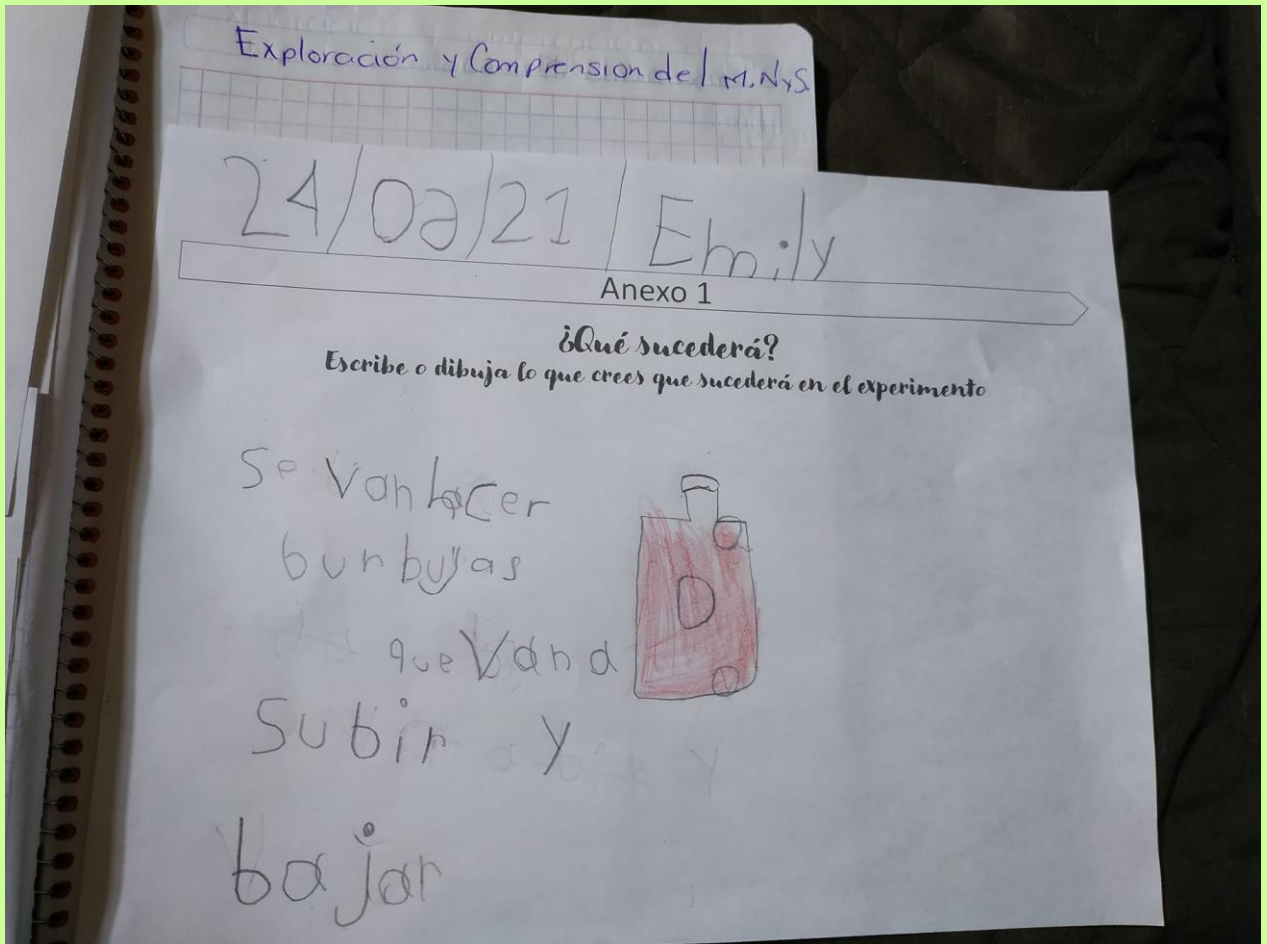 Exploración y Comprension del M.NyS.
24/02/21 / Emily
Anexo 1
¿Qué sucederá?
Escribe o dibuja lo que crees que sucederá en el experimento
Se Van hacer
bunbujas
que Van a
Subir y
bajar